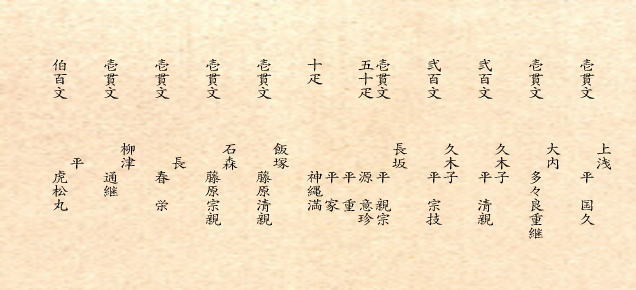 壱貫文 上浅 平 国久
壱貫文 大内 多々良重継
弐百文 久木子 平 清親
弐百文 久木子 平 宗技
壱貫文 長坂 平 親宗
五十疋 源 意珍
平 重
平 家
十疋 神繩満
壱貫文 飯塚 藤原清親
壱貫文 石森 藤原宗親
壱貫文 長 春 栄
壱貫文 柳津 通継
伯百文 平 虎松丸